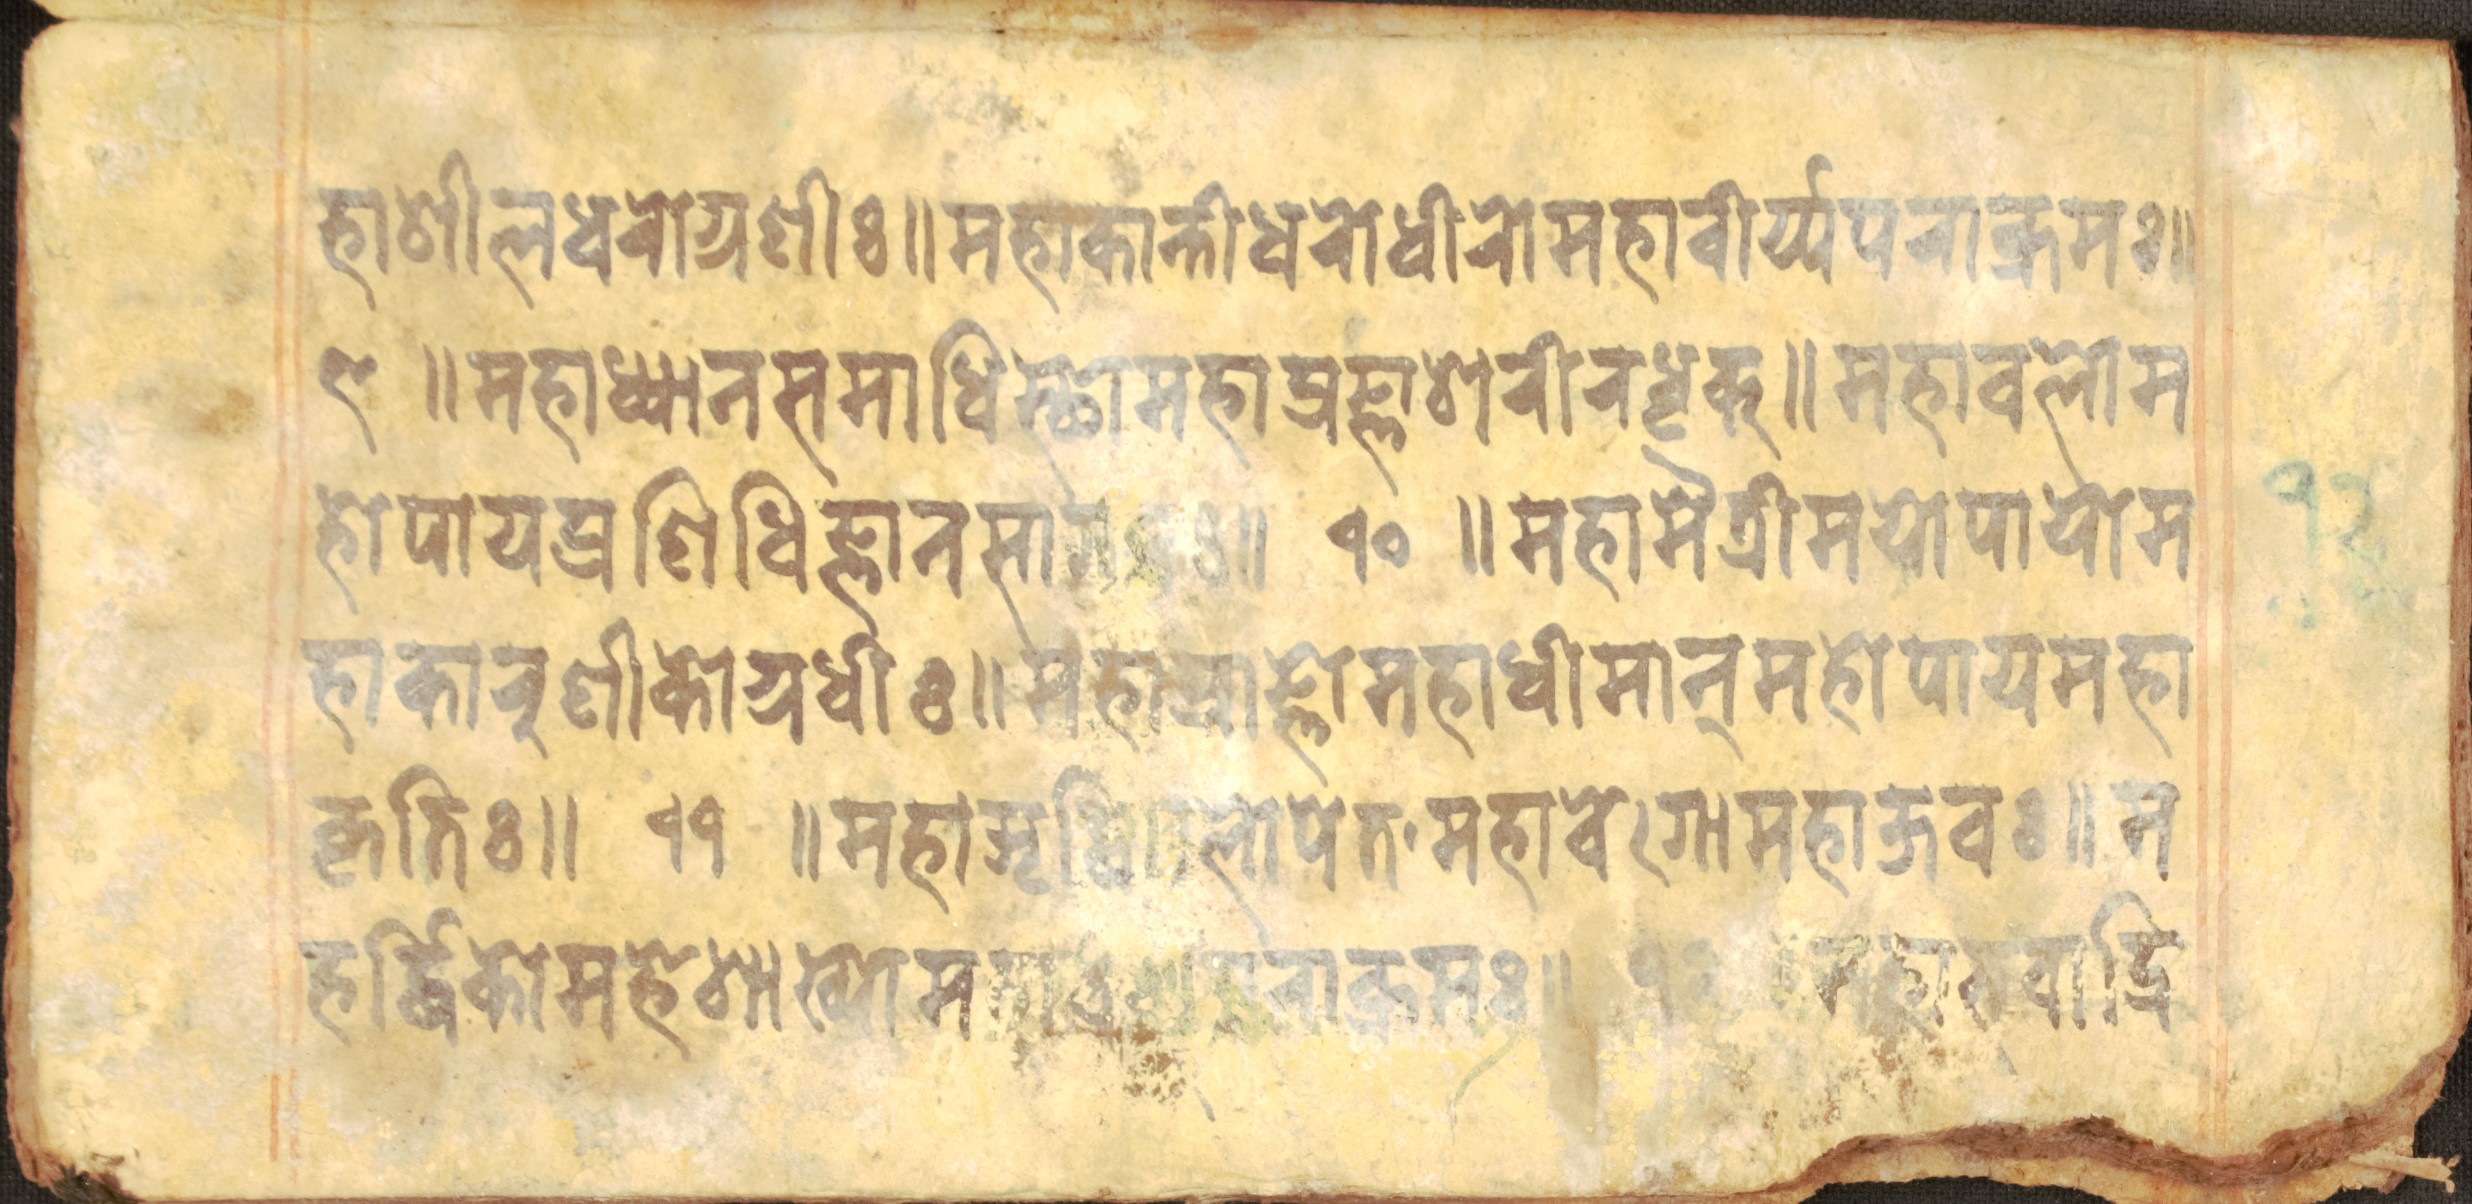 हाशीलधरोग्रणीः॥महाकान्तीधरोधीरोमहावीर्य्यपराक्रमः॥
९ ॥महाध्यानसमाधिस्थोमहाप्रज्ञाशरीरधृक्॥महावलोम
होपायप्रणिधिज्ञानसागरः॥ १० ॥महामैत्रीमयोपायोम
हाकारुणीकोग्रधीः॥महाप्राज्ञोमहाधीमान्महोपायमहा
कृतिः॥ ११ ॥महाऋद्धिवलोपेतमहावेगोमहाजवः॥म
हर्द्धिकोमहेशाख्योमहावलपराक्रमः॥ १२ ॥महाभवाद्रि
१२